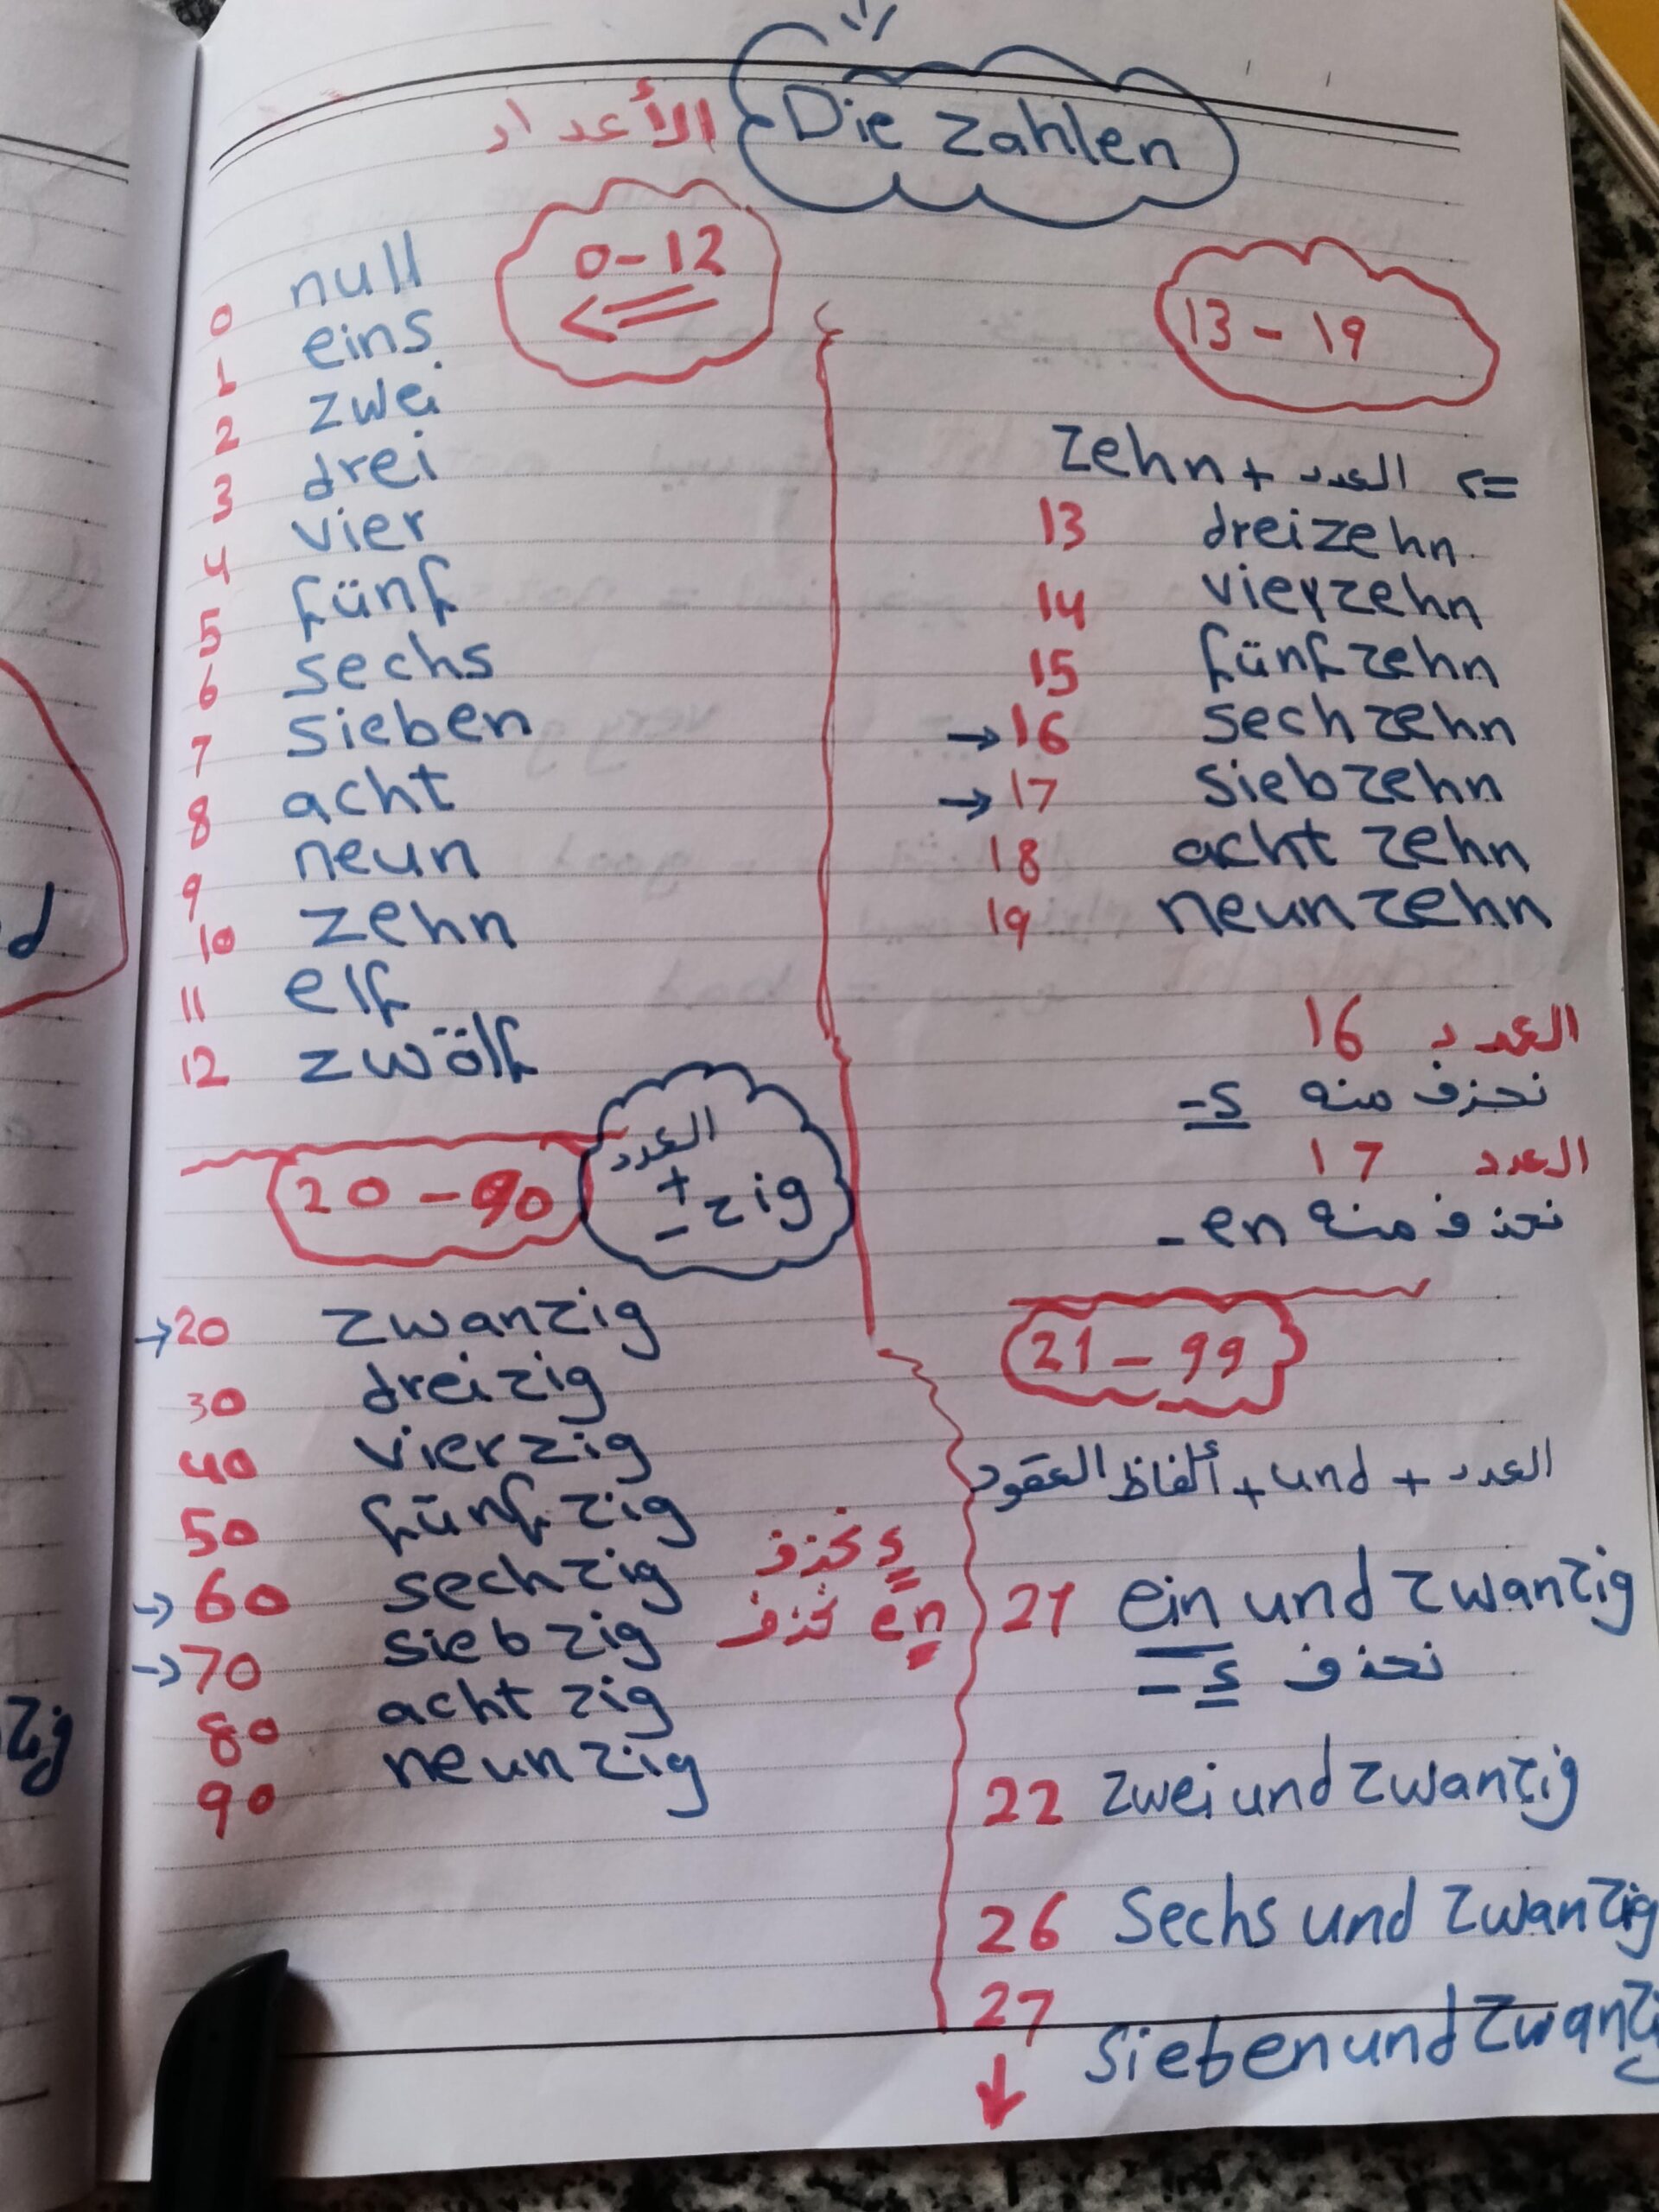 الأعداد Die Zahlen
0-12
0 null
1 eins
2 zwei
3 drei
4 vier
5 fünf
6 sechs
7 sieben
8 acht
9 neun
10 zehn
11 elf
12 zwölf
13 - 19
zehn + العدد <=
13 dreizehn
14 vierzehn
15 fünfzehn
→16 sechzehn
→17 siebzehn
18 acht zehn
19 neunzehn
العدد 16
نحزف منه s-
العدد 17
نحذف منه en-
20 - 90
العدد
+
- zig
→20 zwanzig
30 dreizig
40 vierzig
50 fünfzig
→60 sechzig s نحذف
→70 siebzig en نحذف
80 acht zig
90 neunzig
21 - 99
العدد + und + ألفاظ العقود
21 ein und zwanzig
نحذف s -
22 zwei und zwanzig
26 Sechs und zwanzig
27 Sieben und zwanzi
↓